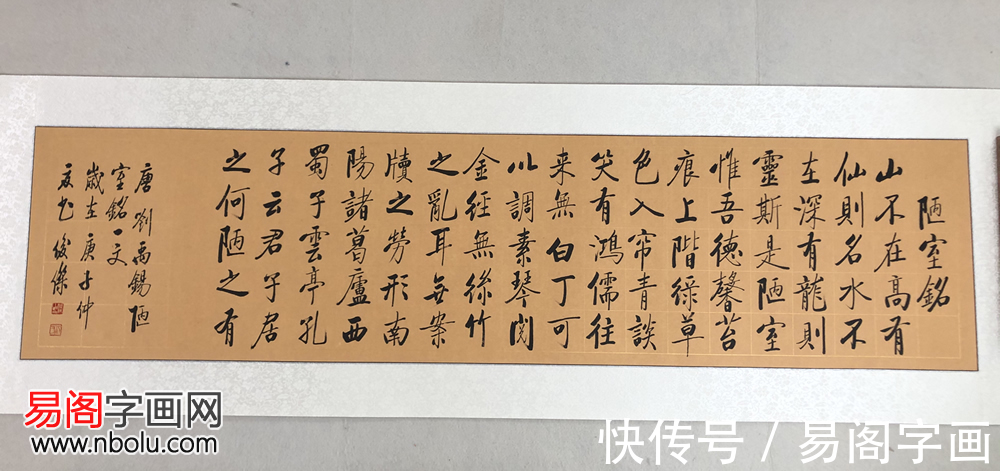 陋室銘
山不在高有
仙則名水不
在深有龍則
靈斯是陋室
惟吾德馨苔
痕上階緑草
色入帘青談
笑有鴻儒往
来無白丁可
以調素琴閱
金經無絲竹
之亂耳無案
牘之勞形南
陽諸葛廬西
蜀子雲亭孔
子云君子居
之何陋之有
唐劉禹錫陋
室銘一文
歲在庚子仲
夏书 俊傑
易阁字画网
www.nbolu.com
快传号 / 易阁字画